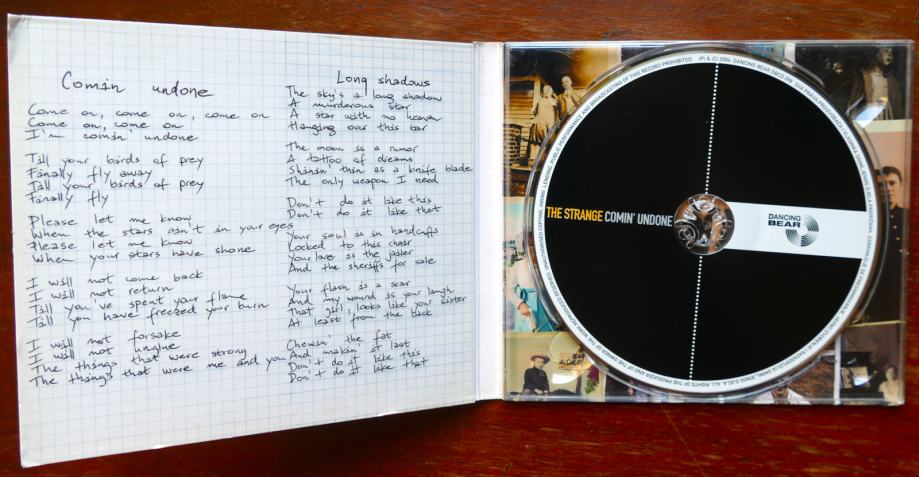 Comin undone
Come on, come on, come on
Come on, come on
I'm comin' undone
Till your birds of prey
Finally fly away
Till your birds of prey
Finally fly
Please let me know
When the stars ain't in your eyes
Please let me know
When your stars have shone
I will not come back
I will not return
Till you've spent your flame
Till you have freezed your burn
I will not forsake
I will not
The things that were strong
The things that were me and you
Long shadows
The sky's a long shadow
A murderous star
A star with no heaven
Hanging over this bar
The moon is a rumor
A tattoo of dreams
Shinin' thin as a knife blade
The only weapon I need
Don't do it like this
Don't do it like that
Your soul is in handcuffs
Locked to this chair
Your love is the jailer
And the sheriff's for sale
Your flesh is a scar
And my wound is your laugh
That girl looks like your sister
At least from the back
Chewin' the fat
And makin' it last
Don't do it like this
Don't do it like that
THE STRANGE COMIN' UNDONE
DANCING
BEAR
(P) & (C) 2004 DANCING BEAR
ALL RIGHTS OF THE PRODUCER AND OF THE OWNER OF THE WORK REPRODUCED RESERVED. UNAUTHORISED COPYING, HIRING, LENDING, PUBLIC PERFORMANCE AND BROADCASTING OF THIS RECORD PROHIBITED.